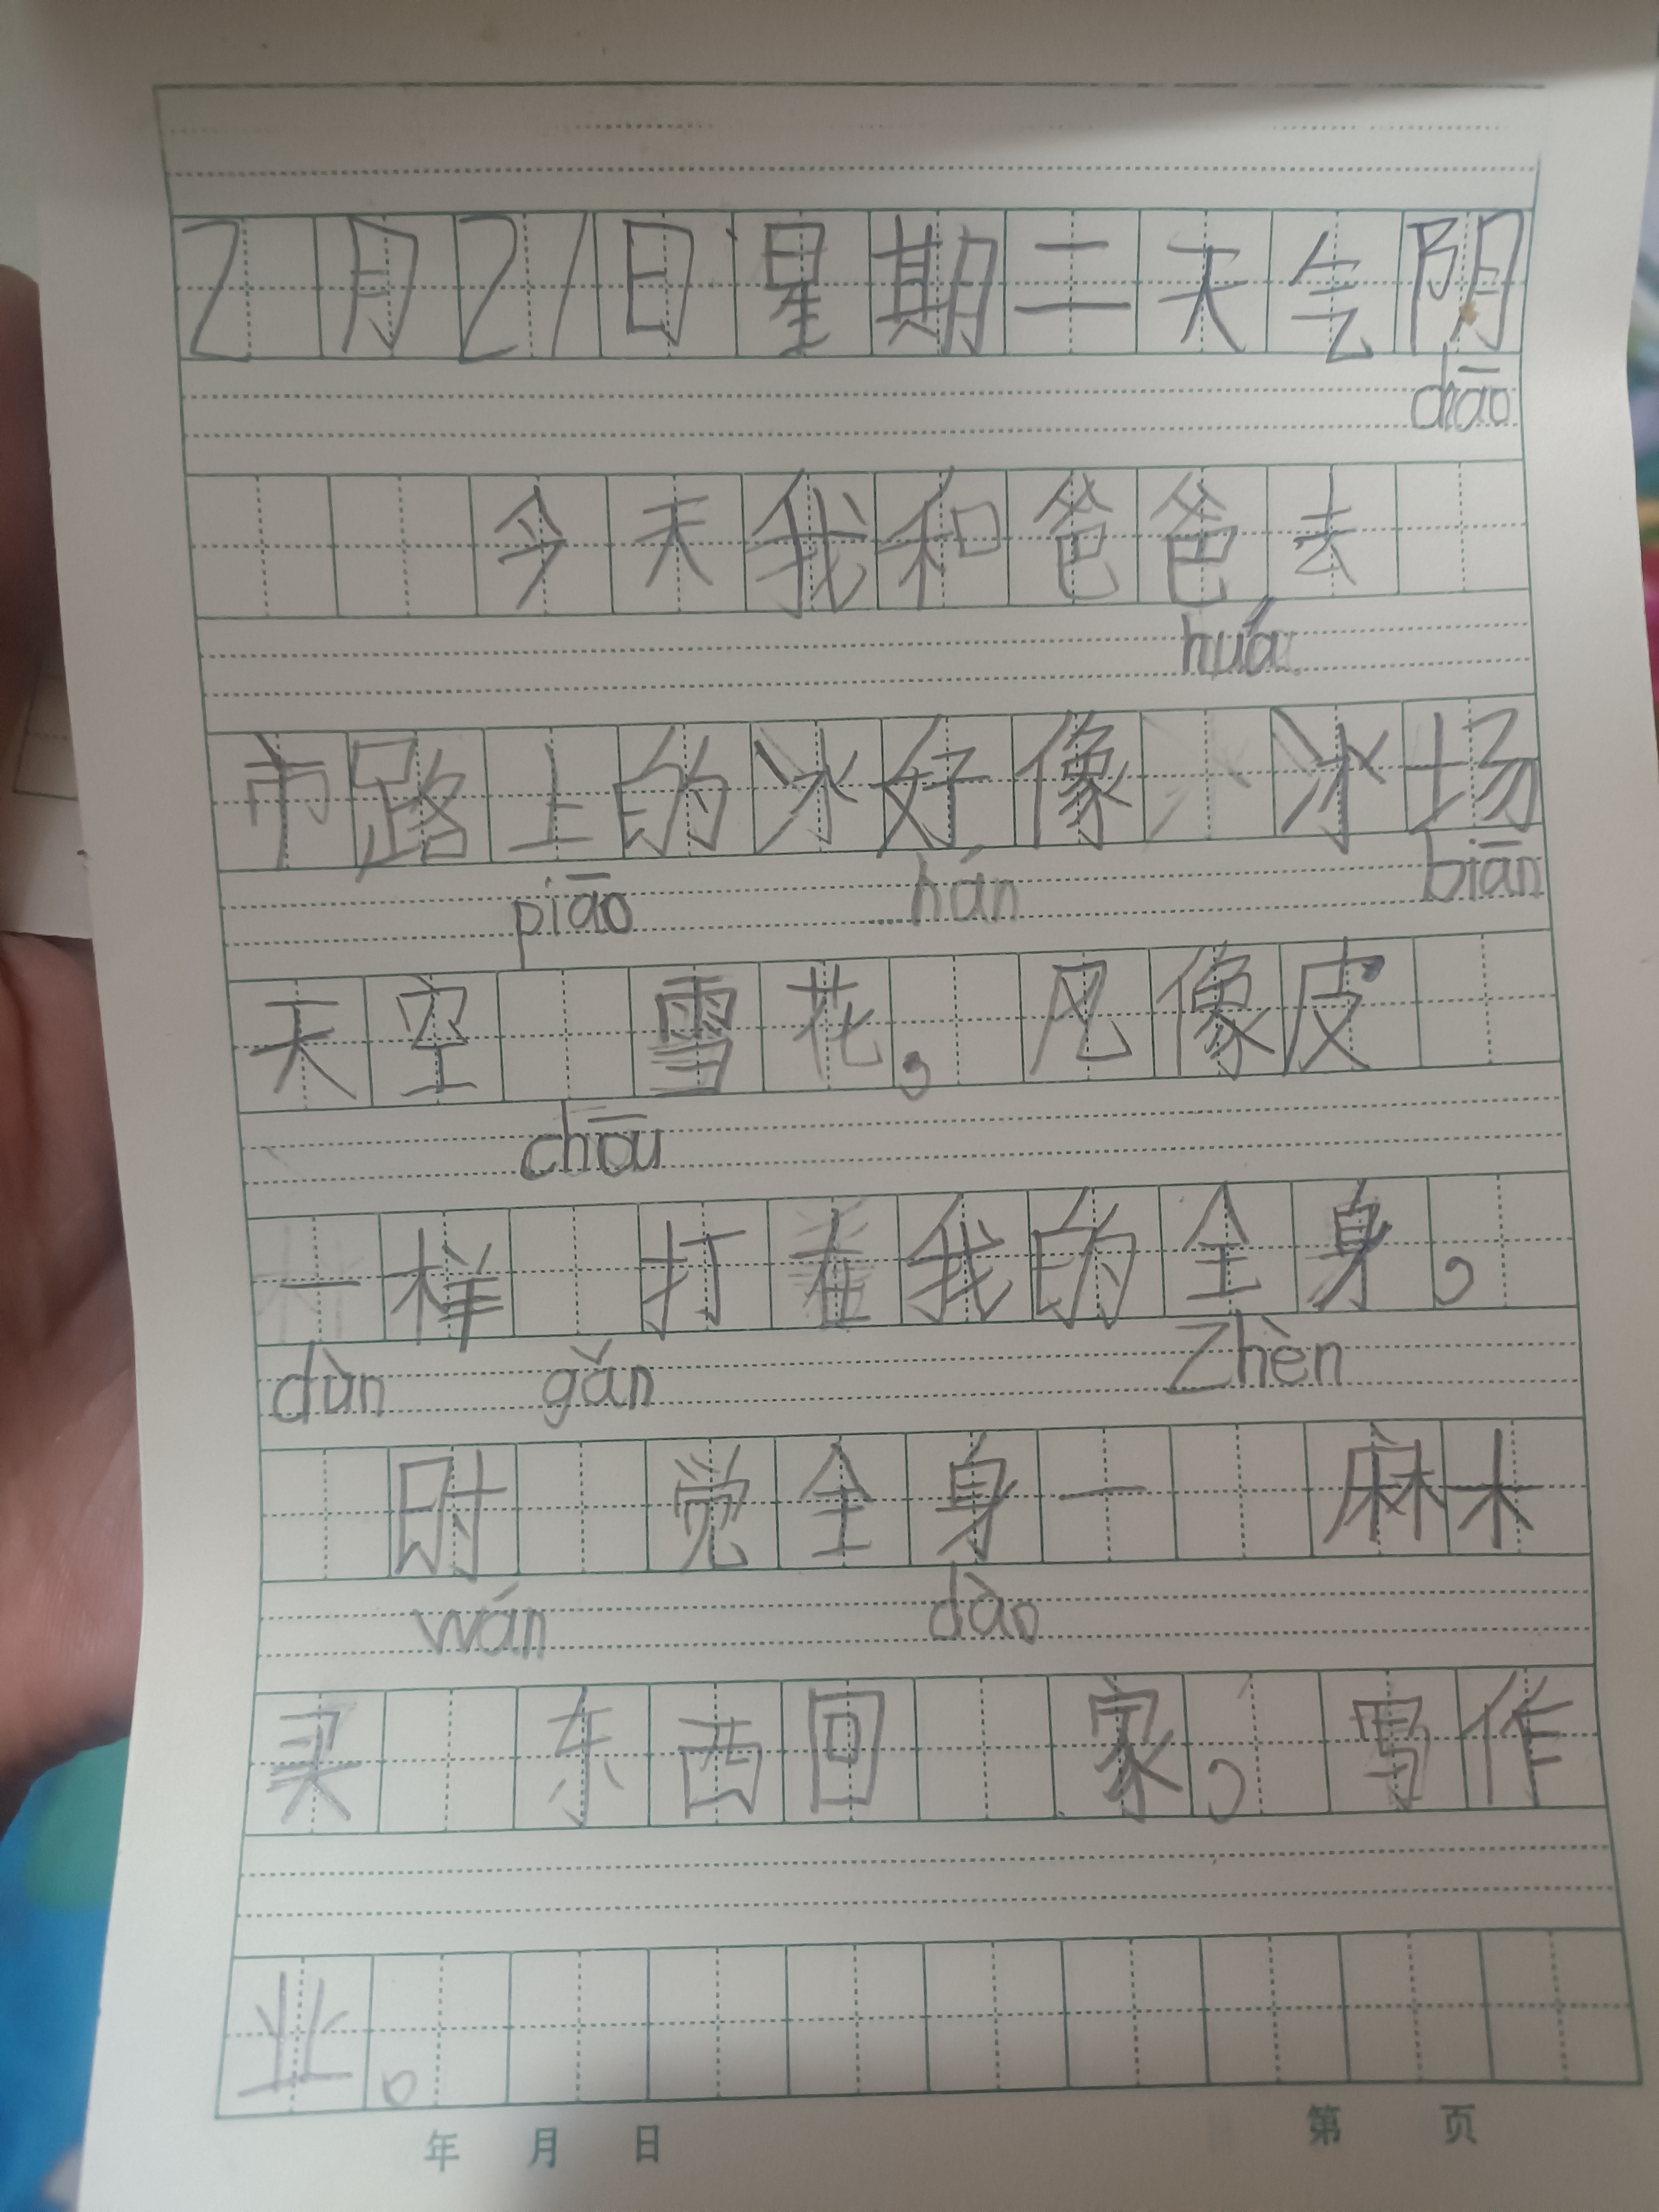 2月21日星期二天气阴
chāo
今天我和爸爸去
huá
市路上的冰好像冰场
piāo hán biān
天空雪花,风像皮
chōu
一样打在我的全身,
dùn gǎn Zhèn
时觉全身一麻木
wán dào
买东西回家,写作
业。
年 月 日 第 页